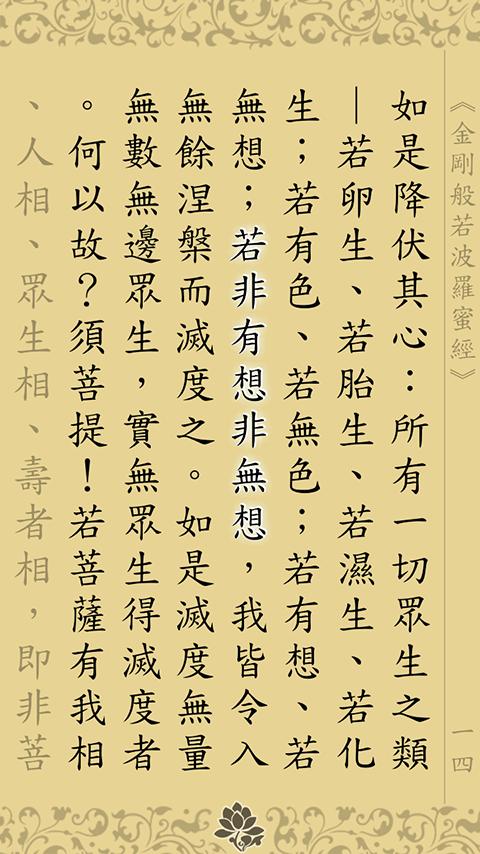 《金剛般若波羅蜜經》
一四
如是降伏其心：所有一切眾生之類
—若卵生、若胎生、若濕生、若化
生；若有色、若無色；若有想、若
無想；若非有想非無想，我皆令入
無餘涅槃而滅度之。如是滅度無量
無數無邊眾生，實無眾生得滅度者
。何以故？須菩提！若菩薩有我相
、人相、眾生相、壽者相，即非菩